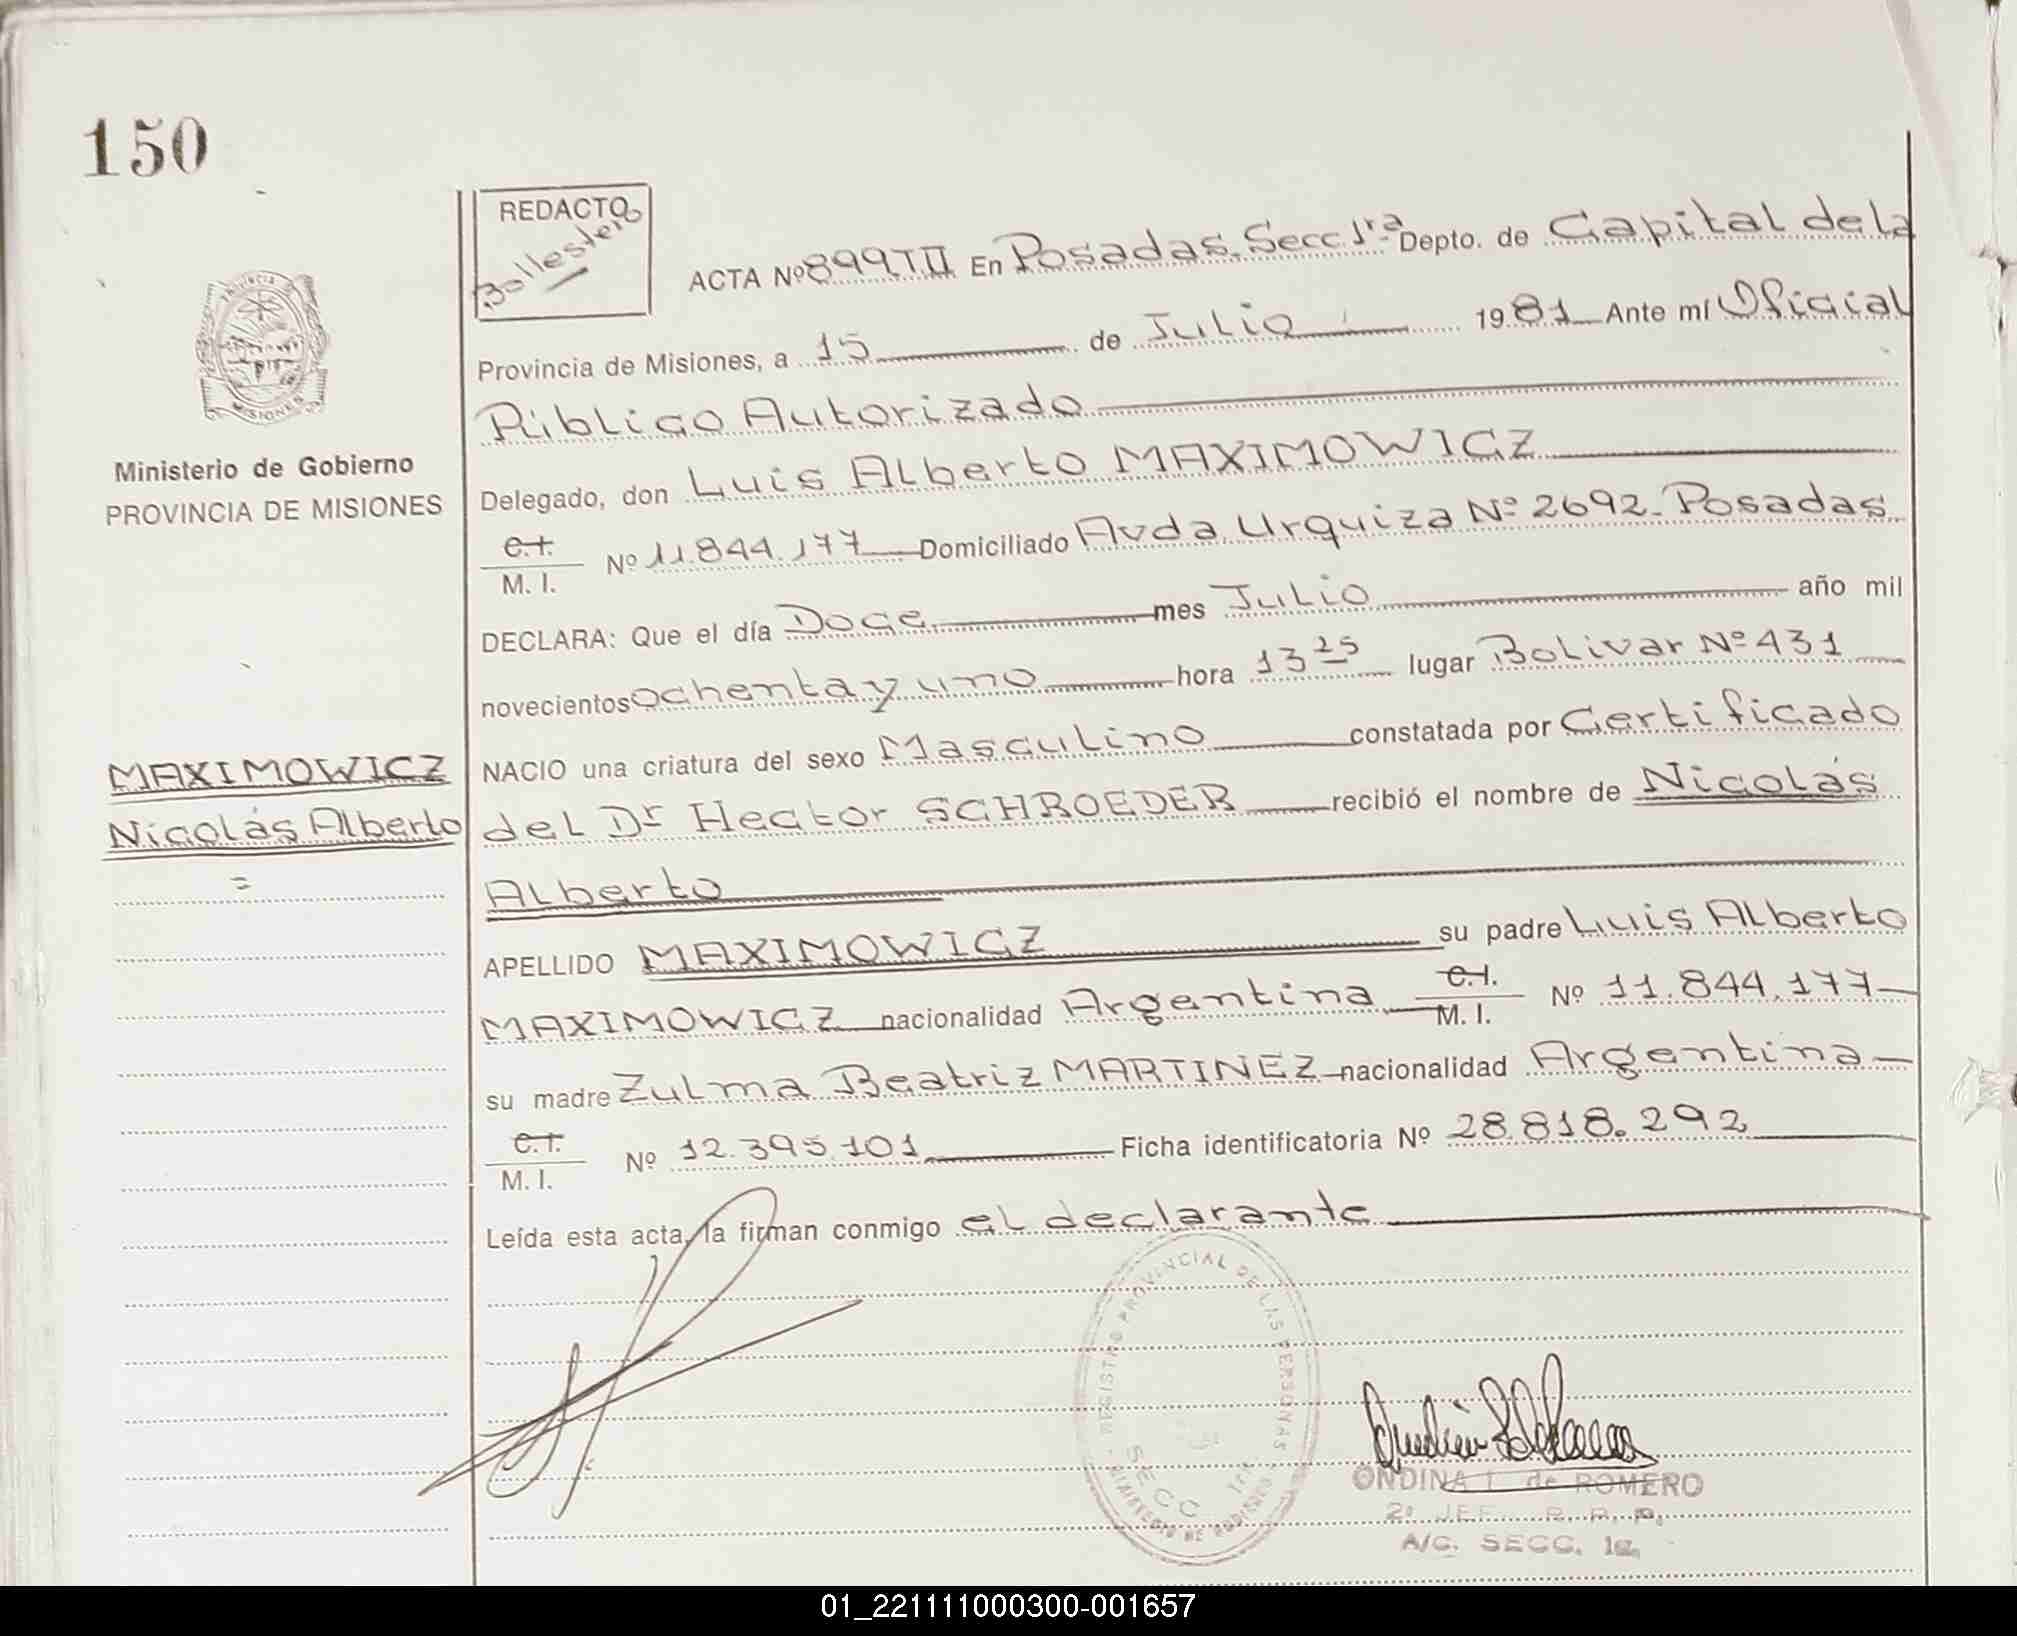 150
REDACTO
Ballestero
ACTA Nº 899 TII En Posadas, Secc 1ra Depto. de Capital de la
Provincia de Misiones, a 15 de Julio 1981 Ante mí Oficial
Público Autorizado
Delegado, don Luis Alberto MAXIMOWICZ
C.I.
M. I. Nº 11.844.177 Domiciliado Avda. Urquiza Nº 2692 - Posadas
DECLARA: Que el día Doce mes Julio año mil
novecientos ochenta y uno hora 13 25 lugar Bolivar Nº 431
NACIO una criatura del sexo Masculino constatada por Certificado
del Dr Hector SCHROEDER recibió el nombre de Nicolás
Alberto
APELLIDO MAXIMOWICZ su padre Luis Alberto
MAXIMOWICZ nacionalidad Argentina C.I. M. I. Nº 11.844.177
su madre Zulma Beatriz MARTINEZ nacionalidad Argentina
C.I.
M. I. Nº 12.395.101 Ficha identificatoria Nº 28.818.292
Leída esta acta, la firman conmigo el declarante
PROVINCIA
MISIONES
Ministerio de Gobierno
PROVINCIA DE MISIONES
MAXIMOWICZ
Nicolás Alberto
REGISTRO PROVINCIAL DE LAS PERSONAS
MINISTERIO DE GOBIERNO
SECC 1ra
ONDINA de ROMERO
2º JEF R. P. P.
A/C. SECC. 1a.
01_221111000300-001657